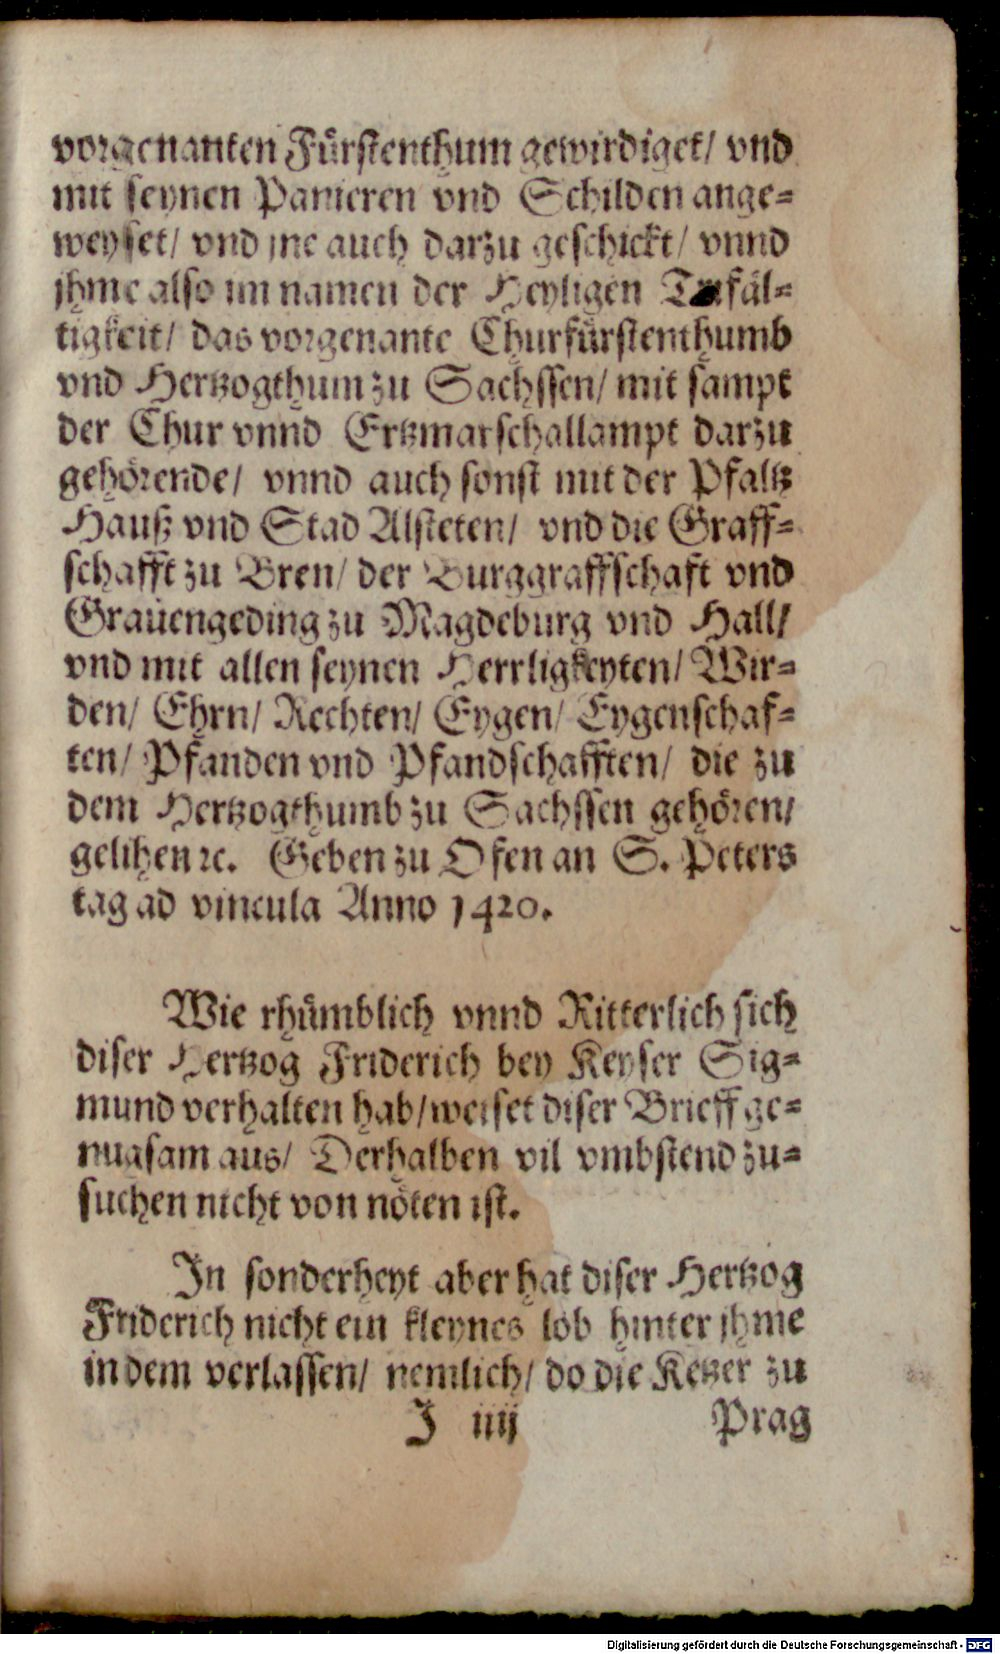 vorgenanten Fürstenthum gewirdiget/ vnd
mit seynen Panieren vnd Schilden ange=
weyset/ vnd jne auch darzu geschickt/ vnnd
jhme also im namen der Heyligen Trifäl=
tigkeit/ das vorgenante Churfürstenthumb
vnd Hertzogthum zu Sachssen/ mit sampt
der Chur vnnd Ertzmarschallampt darzu
gehörende/ vnnd auch sonst mit der Pfaltz
Hauß vnd Stad Alsteten/ vnd die Graff=
schafft zu Bren/ der Burggraffschaft vnd
Grauengeding zu Magdeburg vnd Hall/
vnd mit allen seynen Herrligkeyten/ Wir=
den/ Ehrn/ Rechten/ Eygen/ Eygenschaf=
ten/ Pfanden vnd Pfandschafften/ die zu
dem Hertzogthumb zu Sachssen gehören/
gelihen ꝛc. Geben zu Ofen an S. Peters
tag ad vincula Anno 1420.
Wie rhümblich vnnd Ritterlich sich
diser Hertzog Friderich bey Keyser Sig=
mund verhalten hab/ weiset diser Brieff ge=
nugsam aus/ Derhalben vil vmbstend zu=
suchen nicht von nöten ist.
In sonderheyt aber hat diser Hertzog
Friderich nicht ein kleynes lob hinter jhme
in dem verlassen/ nemlich/ do die Ketzer zu
J iiij Prag
Digitalisierung gefördert durch die Deutsche Forschungsgemeinschaft - DFG